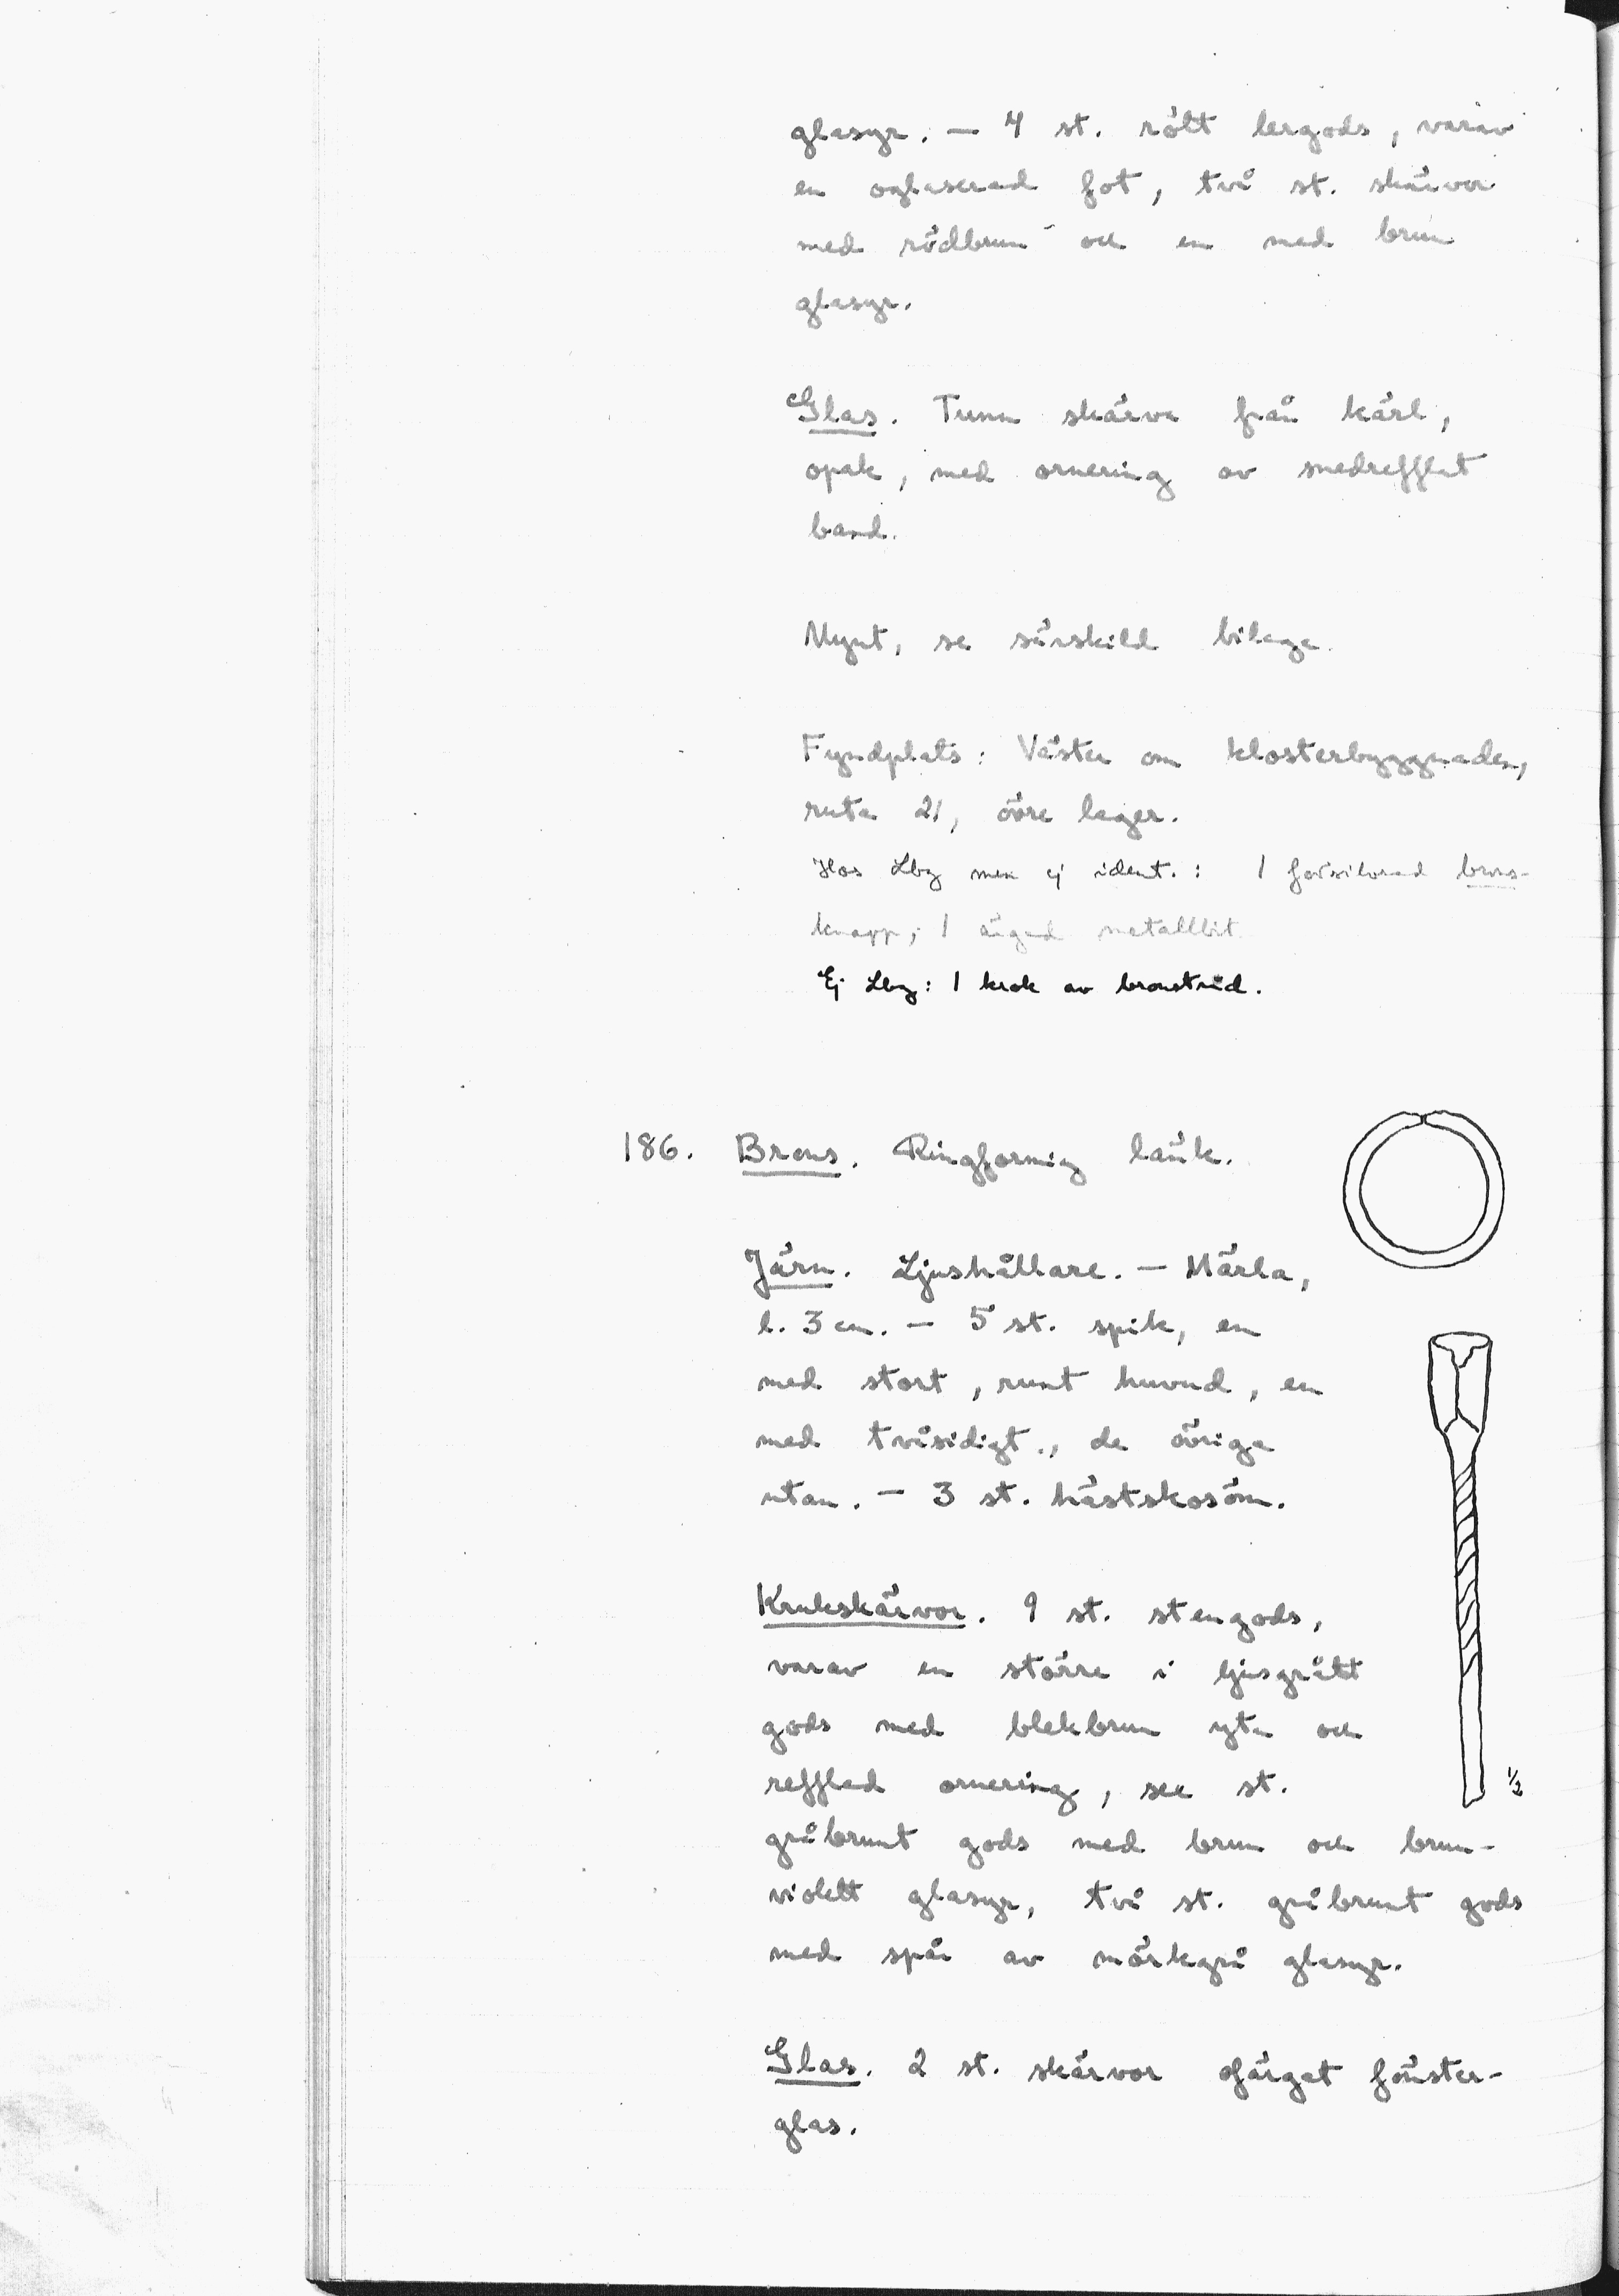 glasyr. — 4 st. rött lergods, varav
en oglaserad fot, två st. skärvor
med rödbrun- och en med brun
glasyr.
Glas. Tunn skärva från kärl,
opak, med ornering av snedrefflat
band.
Mynt, se särskild bilaga.
Fyndplats: Väster om klosterbyggnaden,
ruta 21, övre lager.
Hos Lbg men ej ident.: 1 försilvrad brons-
knapp; 1 ärgad metallbit
Ej Lbg: 1 krok av bronstråd.
186. Brons. Ringformig länk.
Järn. Ljushållare. — Märla,
l. 3 cm. — 5 st. spik, en
med stort, runt huvud, en
med tvåsidigt., de övriga
utan. — 3 st. hästskosöm.
Krukskärvor. 9 st. stengods,
varav en större i ljusgrått
gods med blekbrun yta och
refflad ornering, sex st.
gråbrunt gods med brun och brun-
violett glasyr, två st. gråbrunt gods
med spår av mörkgrå glasyr.
1/2
Glas. 2 st. skärvor ofärgat fönster-
glas.